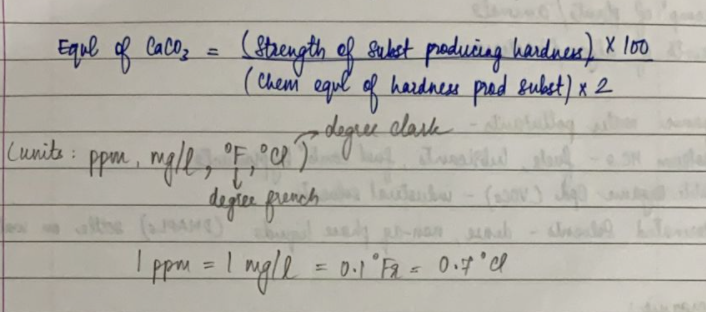 Equl of CaCO₃ = (Strength of subst producing hardness) × 100
(Chem equl of hardness prod subst) × 2
degree clark
(units: ppm, mg/l, °F, °Cl)
degree french
1 ppm = 1 mg/l = 0.1°Fr = 0.7°Cl